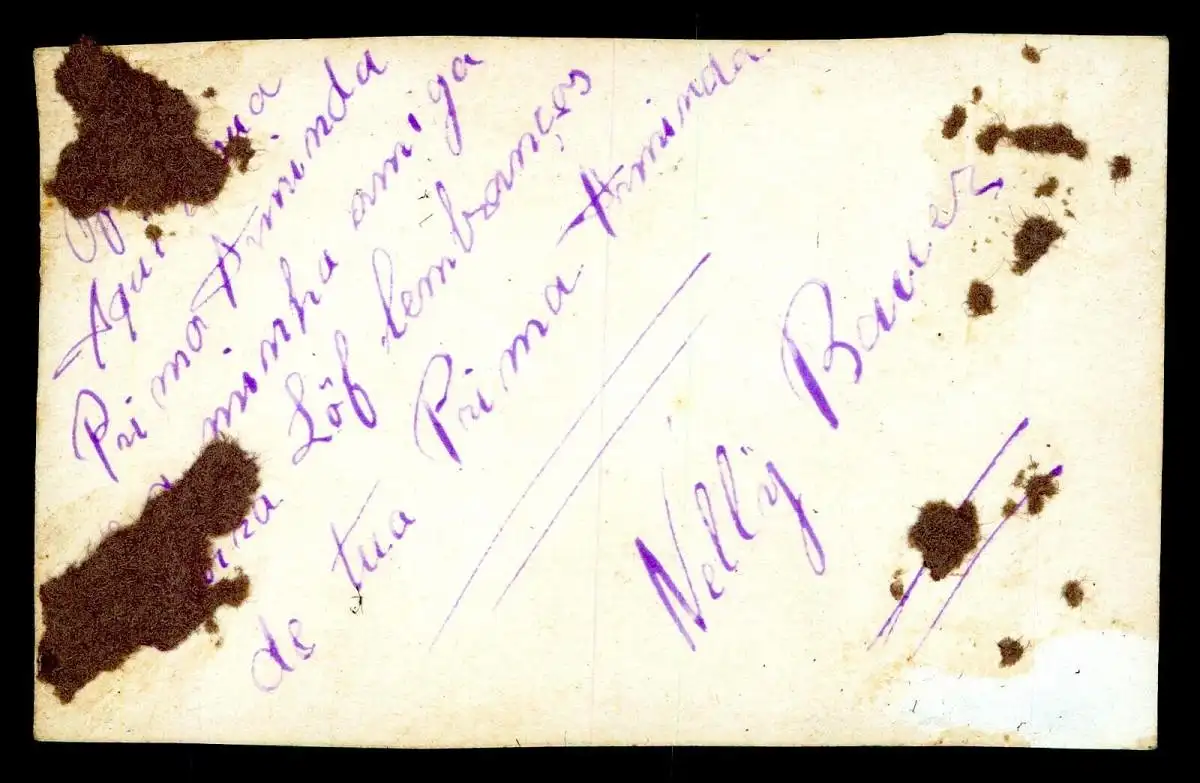 Aqui
Prima Arminda
minha amiga
Löf lembanças
de tua Prima Arminda
Nelly Bauer